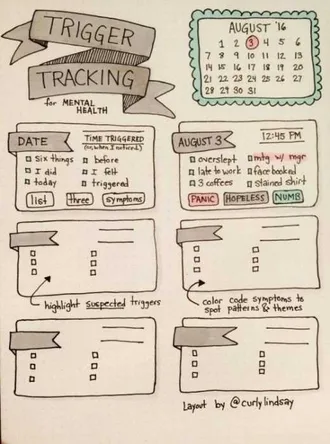 TRIGGER
TRACKING
for MENTAL
HEALTH
AUGUST '16
1 2 3 4 5 6
7 8 9 10 11 12 13
14 15 16 17 18 19 20
21 22 23 24 25 26 27
28 29 30 31
DATE
TIME TRIGGERED
(or when I noticed)
six things
before
I did
I felt
today
triggered
list
three
symptoms
AUGUST 3
12:45 PM
overslept
mtg w/ mgr
late to work
face booked
3 coffees
stained shirt
PANIC
HOPELESS
NUMB
highlight suspected triggers
color code symptoms to
spot patterns & themes
Layout by @curlylindsay